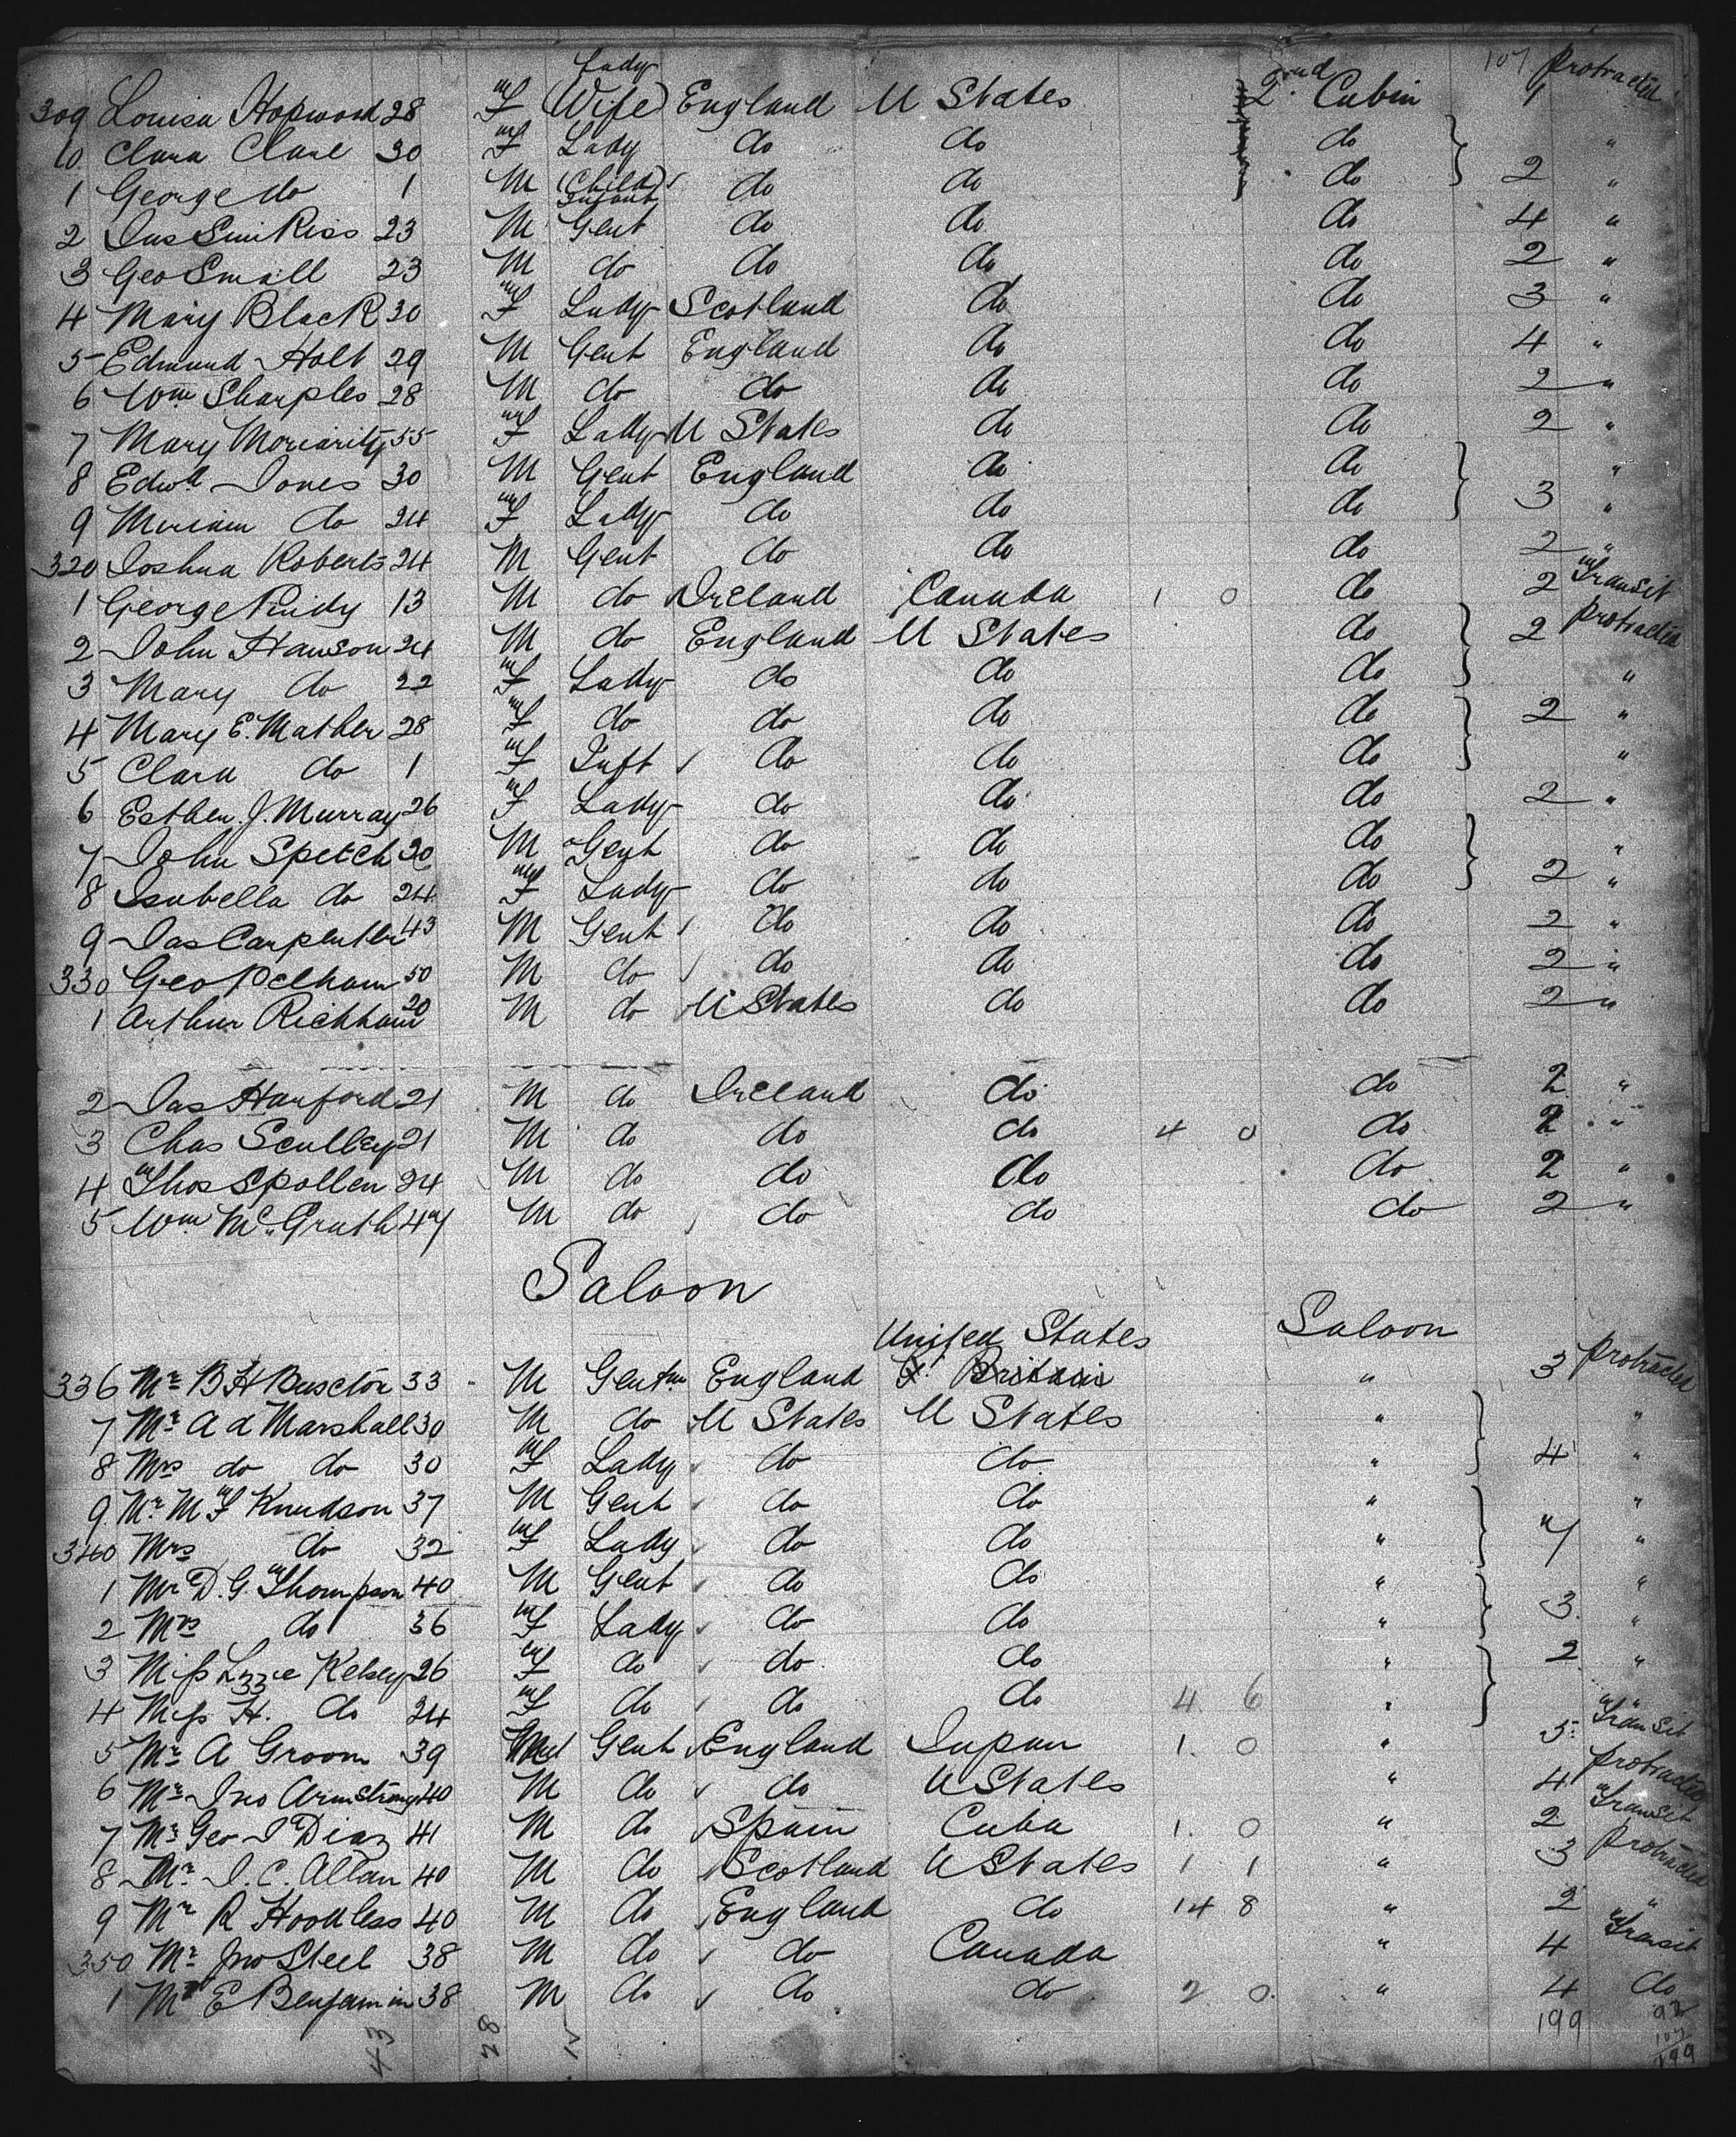 107 protracted
309 Louisa Hopwood 28 F Lady (Wife) England U States 2nd Cabin 1
10 Clara Clare 30 F Lady do do do "
1 George do 1 M (Child) Infant do do do 2 "
2 Jas 23 M Gent do do do 4 "
3 Geo Small 23 M do do do do 2 "
4 Mary Black 30 F Lady Scotland do do 3 "
5 Edmund Holt 29 M Gent England do do 4 "
6 Wm Sharples 28 M do do do do 2 "
7 Mary Moriarity 55 F Lady U States do do 2 "
8 Edwd Jones 30 M Gent England do do "
9 Miriam do 24 F Lady do do do 3 "
320 Joshua Roberts 24 M Gent do do do 2 "
1 George 13 M do Ireland Canada 1 0 do 2 Transit
2 John Hanson 24 M do England U States do 2 protracted
3 Mary do 22 F Lady do do do "
4 Mary E. Mather 28 F do do do do 2 "
5 Clara do 1 F Inft do do do "
6 Esther J. Murray 26 F Lady do do do 2 "
7 John Spetch M Gent do do do "
8 Isabella do 24 F Lady do do do 2 "
9 Jas Carpenter 43 M Gent do do do 2 "
330 Geo Pelham 50 M do do do do 2 "
1 Arthur Rickham 20 M do U States do do 2 "
2 Jas Hanford 21 M do Ireland do do 2 "
3 Chas Sculley 21 M do do do 4 0 do 2 "
4 Thos Spollen 24 M do do do do 2 "
5 Wm McGrath 47 M do do do do 2 "
Saloon
United States Saloon
336 Mr B H Buscton 33 M Gentm England Gt Britain " 3 protracted
7 Mr A d Marshall 30 M do U States U States " "
8 Mrs do do 30 F Lady do do " 4 "
9 Mr M T Knudson 37 M Gent do do " "
340 Mrs do 32 F Lady do do " 7 "
1 Mr D. G Thompson 40 M Gent do do " "
2 Mrs do 36 F Lady do do " 3 "
3 Miss Lizzie Kelsey 26 F do do do " 2 "
4 Miss H. do 24 F do do do 4 6 " "
5 Mr A Groom 39 M Gent England Japan 1. 0 " 5 Transit
6 Mr Jno Armstrong 40 M do do U States " 4 protracted
7 Mr Geo J Diaz 41 M do Spain Cuba 1. 0 " 2 Transit
8 Mr J. C. Allan 40 M do Scotland U States 1 1 " 3 protracted
9 Mr R Hoodless 40 M do England do 14 8 " 2 "
350 Mr Jno Steel 38 M do do Canada " 4 Transit
1 Mr E Benjamin 38 M do do do 2 0. " 4 do
43 28 199 92
107
199